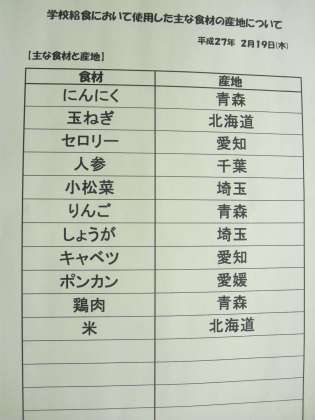 学校給食において使用した主な食材の産地について
平成27年 2月19日(木)
【主な食材と産地】
食材 産地
にんにく 青森
玉ねぎ 北海道
セロリー 愛知
人参 千葉
小松菜 埼玉
りんご 青森
しょうが 埼玉
キャベツ 愛知
ポンカン 愛媛
鶏肉 青森
米 北海道